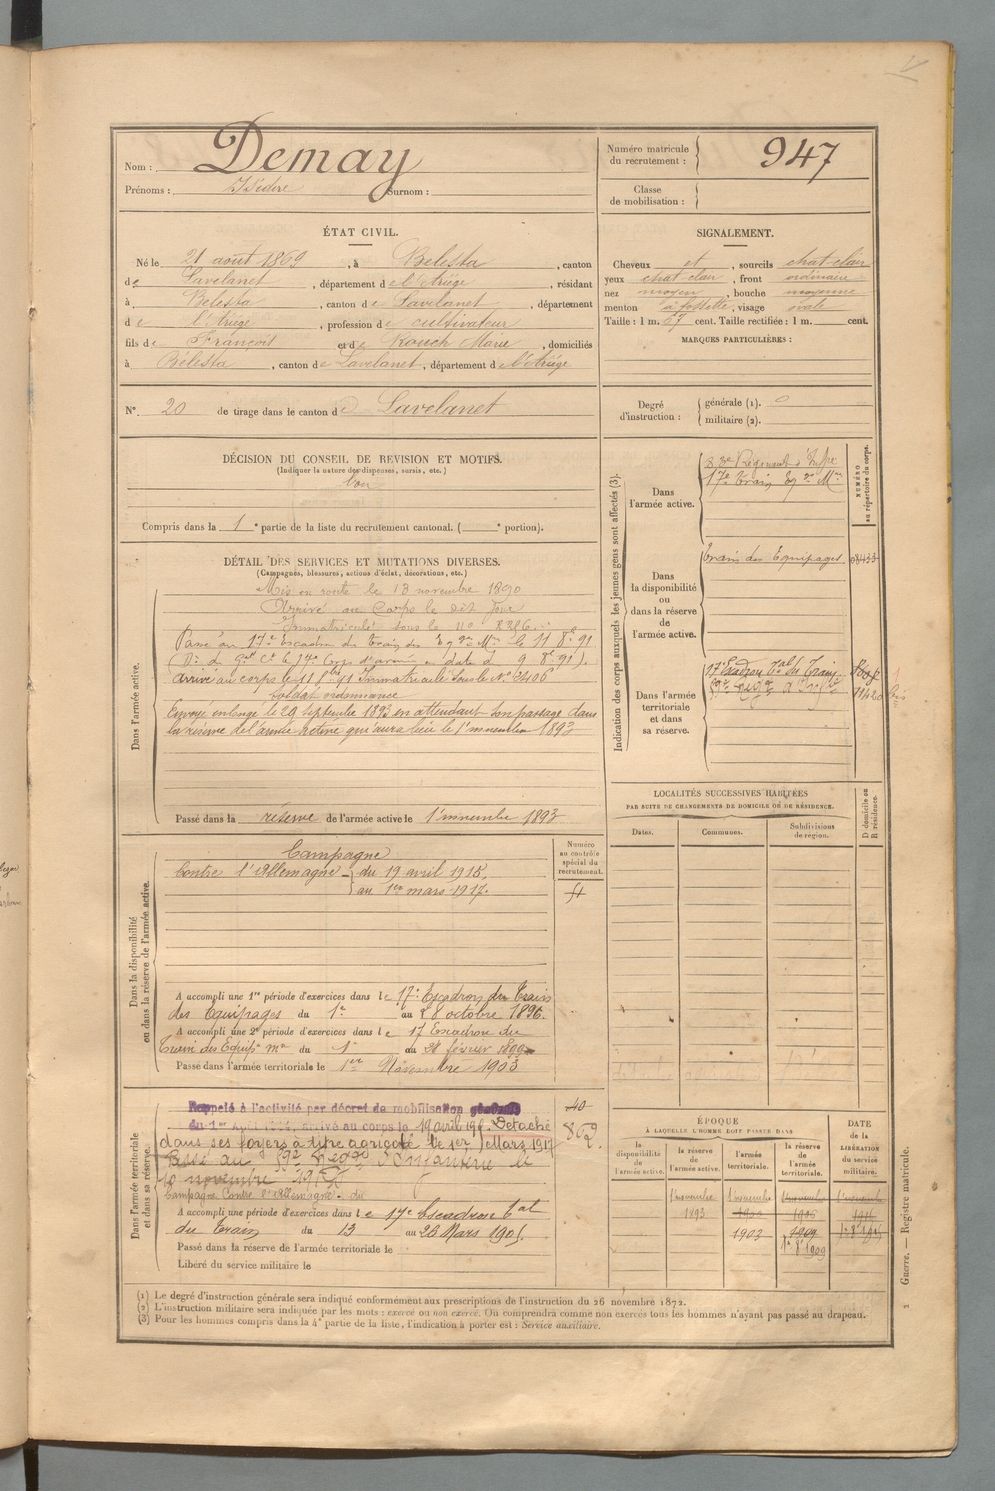 Nom : Demay
Prénoms : Isidore Surnom :
Numéro matricule du recrutement : 947
Classe de mobilisation :
ÉTAT CIVIL.
Né le 21 août 1869, à Bélesta, canton
de Lavelanet, département de l'Ariège, résidant
à Bélesta, canton de Lavelanet, département
de l'Ariège, profession de cultivateur
fils de François et de Rouch Marie, domiciliés
à Bélesta, canton de Lavelanet, département de l'Ariège
N° 20 de tirage dans le canton de Lavelanet
SIGNALEMENT.
Cheveux et, sourcils chat clair
yeux chat clair, front ordinaire
nez moyen, bouche moyenne
menton à fossette, visage ovale
Taille : 1 m. 67 cent. Taille rectifiée : 1 m. cent.
MARQUES PARTICULIÈRES :
Degré d'instruction : générale (1). 0
militaire (2).
DÉCISION DU CONSEIL DE REVISION ET MOTIFS.
(Indiquer la nature des dispenses, sursis, etc.)
bon
Compris dans la 1e partie de la liste du recrutement cantonal. ( e portion).
DÉTAIL DES SERVICES ET MUTATIONS DIVERSES.
(Campagnes, blessures, actions d'éclat, décorations, etc.)
Dans l'armée active.
Mis en route le 13 novembre 1890
Arrivé au Corps le dit jour
Immatriculé sous le n°
Passé au 17e Escadron du train des Eq. Mres le 11 8bre 91
arrivé au corps le 11 8bre 91 Immatriculé sous le N° 2406
soldat ordonnance
Envoyé en congé le 29 septembre 1893 en attendant son passage dans
la réserve de l'armée active qui aura lieu le 1er novembre 1893
Passé dans la réserve de l'armée active le 1er novembre 1893
Indication des corps auxquels les jeunes gens sont affectés (3).
NUMÉRO au répertoire du corps.
Dans l'armée active.
17e train Eq. Mres
Dans la disponibilité ou dans la réserve de l'armée active.
train des Equipages
Dans l'armée territoriale et dans sa réserve.
17e Escadron tal du Train
LOCALITÉS SUCCESSIVES HABITÉES
PAR SUITE DE CHANGEMENTS DE DOMICILE OU DE RÉSIDENCE.
Dates. Communes. Subdivisions de région. D domicile ou R résidence.
Dans la disponibilité ou dans la réserve de l'armée active.
Numéro au contrôle spécial du recrutement.
Campagne
Contre l'Allemagne - du 19 avril 1915,
au 1er mars 1917.
A accompli une 1re période d'exercices dans le 17e Escadron du Train
des Equipages du 1er au 28 octobre 1896.
A accompli une 2e période d'exercices dans le 17 Escadron du
Train des Equips mres du 1er au 28 février 1899
Passé dans l'armée territoriale le 1er Novembre 1903
Dans l'armée territoriale et dans sa réserve.
Rappelé à l'activité par décret de mobilisation générale
du 1er Août 1914, arrivé au corps le 19 avril 1915. Détaché
dans ses foyers à titre agricole le 1er Mars 1917
Passé au d'Infanterie le
10 novembre
Campagne Contre l'Allemagne - du
A accompli une période d'exercices dans le 17e Escadron tal
du Train du 13 au 26 Mars 1905.
Passé dans la réserve de l'armée territoriale le
Libéré du service militaire le
40
862
ÉPOQUE
À LAQUELLE L'HOMME DOIT PASSER DANS
la disponibilité de l'armée active.
la réserve de l'armée active.
l'armée territoriale.
la réserve de l'armée territoriale.
DATE de la LIBÉRATION du service militaire.
1er novembre 1er novembre 1er novembre 1er novembre
1893
1903 1909
1909
(1) Le degré d'instruction générale sera indiqué conformément aux prescriptions de l'instruction du 26 novembre 1872.
(2) L'instruction militaire sera indiquée par les mots : exercé ou non exercé. On comprendra comme non exercés tous les hommes n'ayant pas passé au drapeau.
(3) Pour les hommes compris dans la 4e partie de la liste, l'indication à porter est : Service auxiliaire.
Guerre. — Registre matricule.